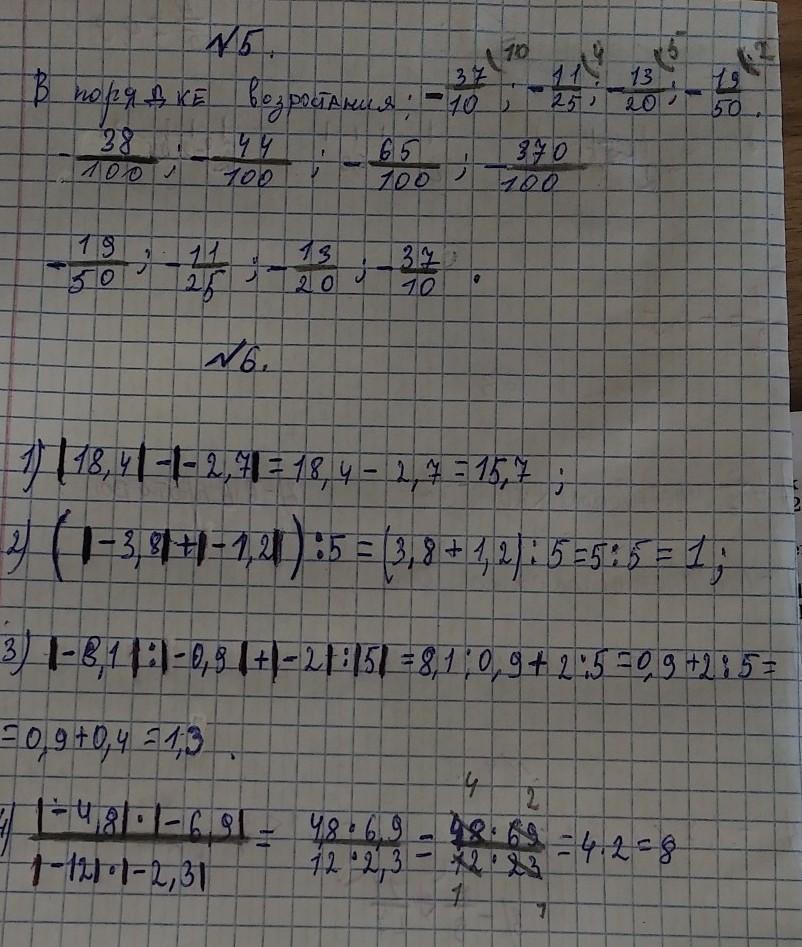 №5.
10 4 5 2
В порядке возростания: -37/10; -11/25; -13/20; -19/50.
-38/100; -44/100; -65/100; -370/100
-19/50; -11/25; -13/20; -37/10.
№6.
1) |18,4|-|-2,7|=18,4-2,7=15,7;
2) (|-3,8|+|-1,2|):5=(3,8+1,2):5=5:5=1;
3) |-8,1|:|-0,9|+|-2|:|5|=8,1:0,9+2:5=0,9+2:5=
=0,9+0,4=1,3.
4 2
4) |-4,8|·|-6,9|/|-12|·|-2,3| = 48·6,9/12·2,3 = 48·69/12·23 = 4·2=8
1 1